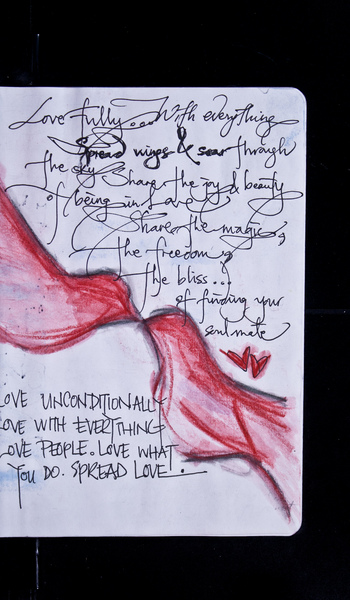 Love fully... With everything
Spread wings & soar through
the sky. Share the joy & beauty
of being in Love
Share the magic,
the freedom,
the bliss...
of finding your
soulmate
LOVE UNCONDITIONALLY
LOVE WITH EVERYTHING
LOVE PEOPLE. LOVE WHAT
YOU DO. SPREAD LOVE!